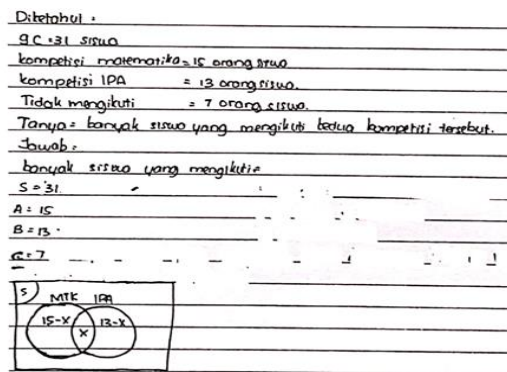 Diketahui :
9C = 31 siswa
kompetisi matematika = 15 orang siswa
kompetisi IPA = 13 orang siswa.
Tidak mengikuti = 7 orang siswa.
Tanya = banyak siswa yang mengikuti kedua kompetisi tersebut.
Jawab :
banyak siswa yang mengikuti =
S = 31.
A = 15
B = 13
C = 7
S
MTK IPA
15-x x 13-x